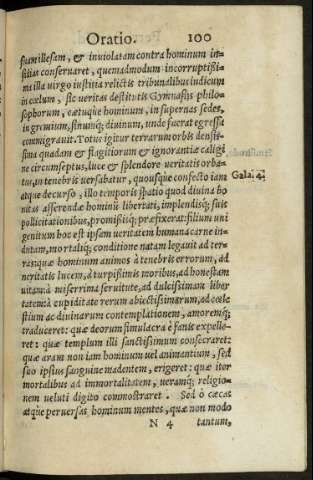 Oratio. 100
suam illesam, & inuiolatam contra hominum in-
sidias conseruaret, quemadmodum incorruptißi-
ma illa virgo iustitia relictis tribunalibus iudicum
in cœlum, sic veritas destitutis Gymnasijs philo-
sophorum, cœtuque hominum, in supernas sedes,
in gremium, sinumq; diuinum, unde fuerat egressa
commigrauit. Totus igitur terrarum orbis densis-
sima quadam & flagitiorum & ignorantiæ caligi
ne circumseptus, luce & splendore veritatis orba-
tus, in tenebris versabatur, quousque confecto iam
Gala. 4.
atque decurso, illo temporis spatio quod diuina bo
nitas asserendæ hominū libertati, implendisq; suis
pollicitationibus, promißisq; præfixerat: filium uni
genitum hoc est ipsam veritatem humana carne in-
dutam, mortaliq; conditione natam legauit ad ter-
ras: quæ hominum animos à tenebris errorum, ad
veritatis lucem, à turpißimis moribus, ad honestam
uitam: à miserrima seruitute, ad dulcissimam liber
tatem: à cupiditate rerum abiectissimarum, ad cœle
stium ac diuinarum contemplationem, amoremq;
traduceret: quæ deorum simulacra è fanis expelle-
ret: quæ templum illi sanctissimum consecraret:
quæ aram non iam hominum vel animantium, sed
suo ipsius sanguine madentem, erigeret: quæ iter
mortalibus ad immortalitatem, ueramq; religio-
nem veluti digito commostraret. Sed ô cæcas
atque peruersas hominum mentes, quæ non modo
N 4 tantum,